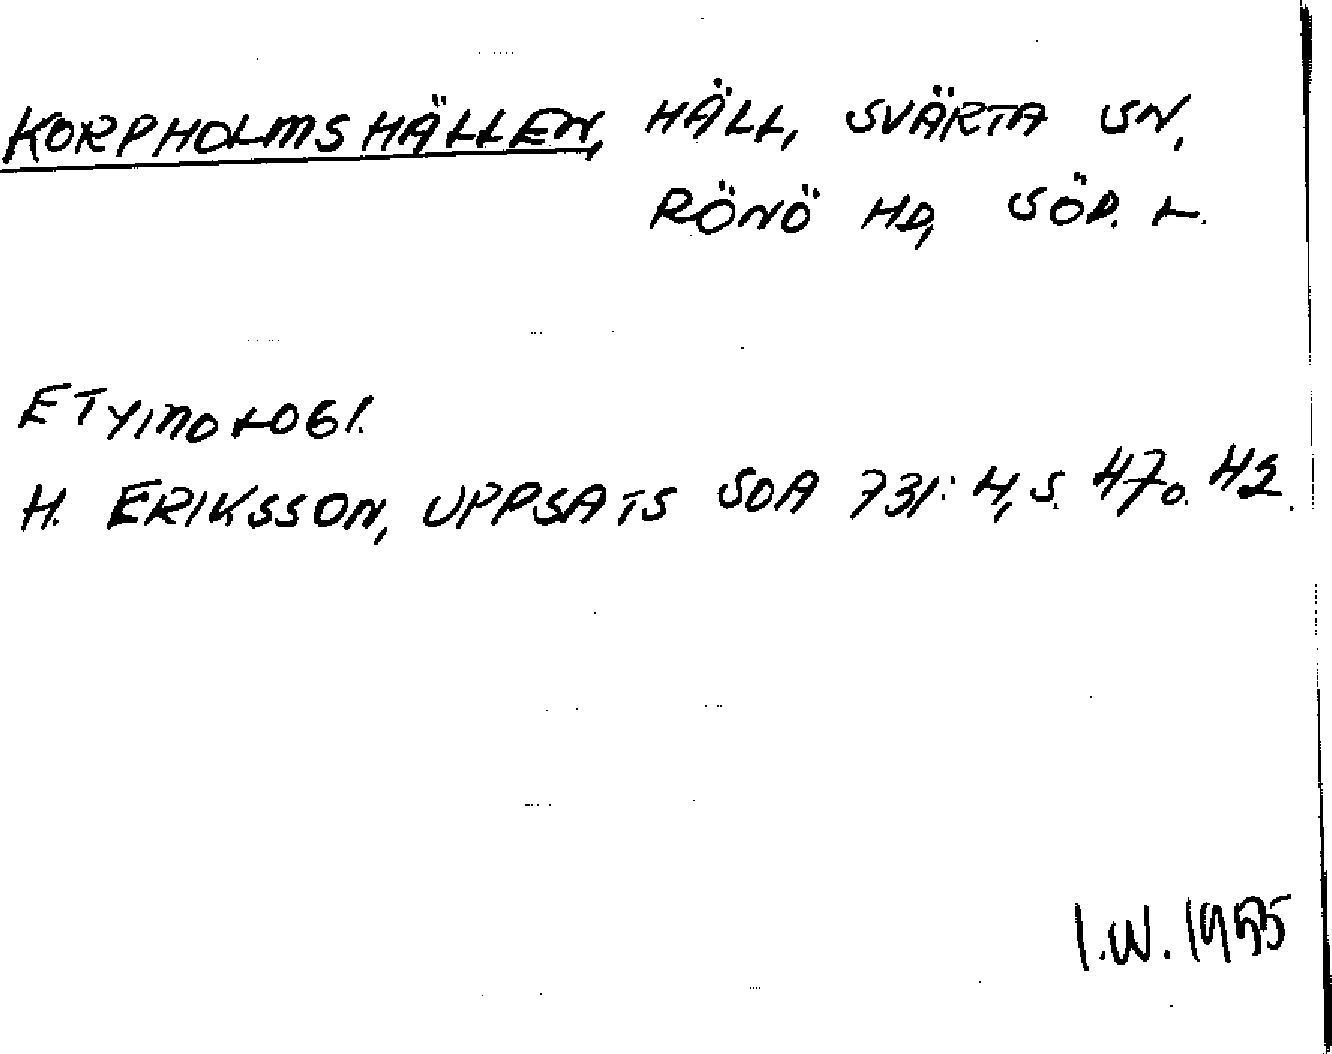 KORPHOLMSHÄLLEN, HÄLL, SVÄRTA SN,
RÖNÖ HD, SÖD. L.
ETYMOLOGI.
H. ERIKSSON, UPPSATS SOA 731:4, S. 47 o. 42.
I.W. 1955